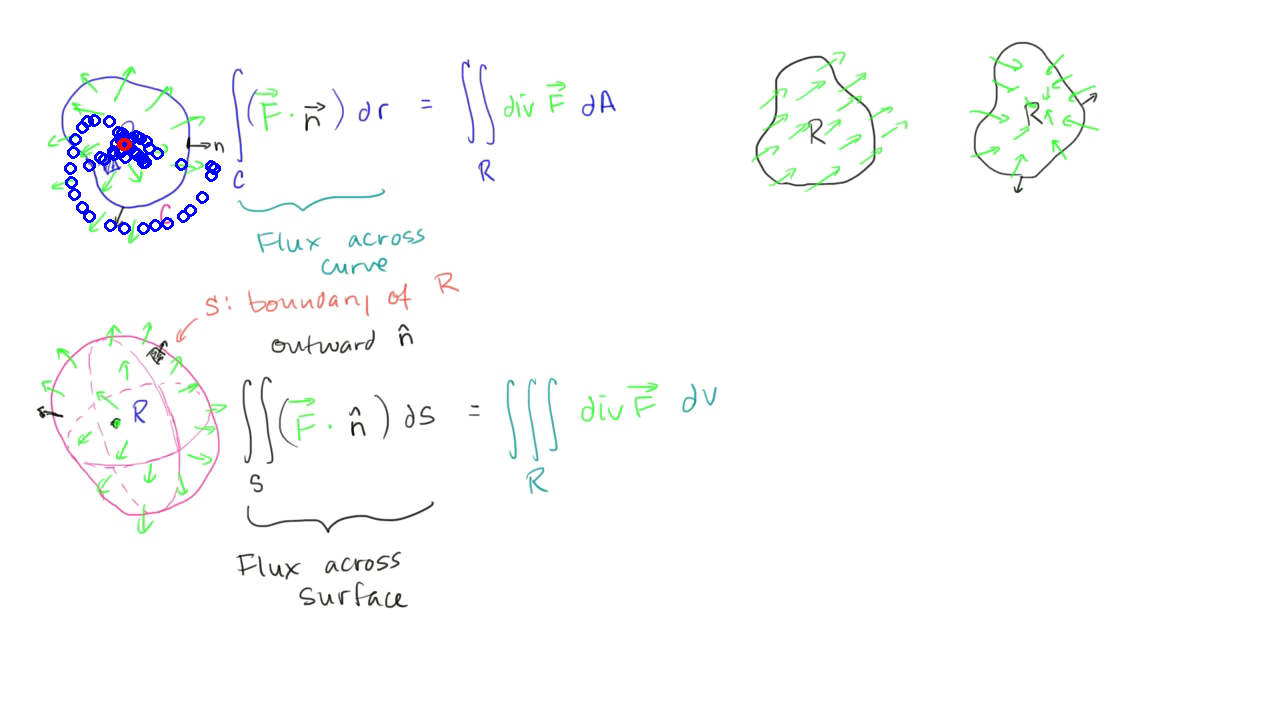 n
∫(F⃗ · n⃗) dr = ∬ div F⃗ dA
C R
C
Flux across
curve
S: boundary of R
outward n̂
R
∬(F⃗ · n̂) dS = ∭ div F⃗ dV
S R
Flux across
surface
R
R